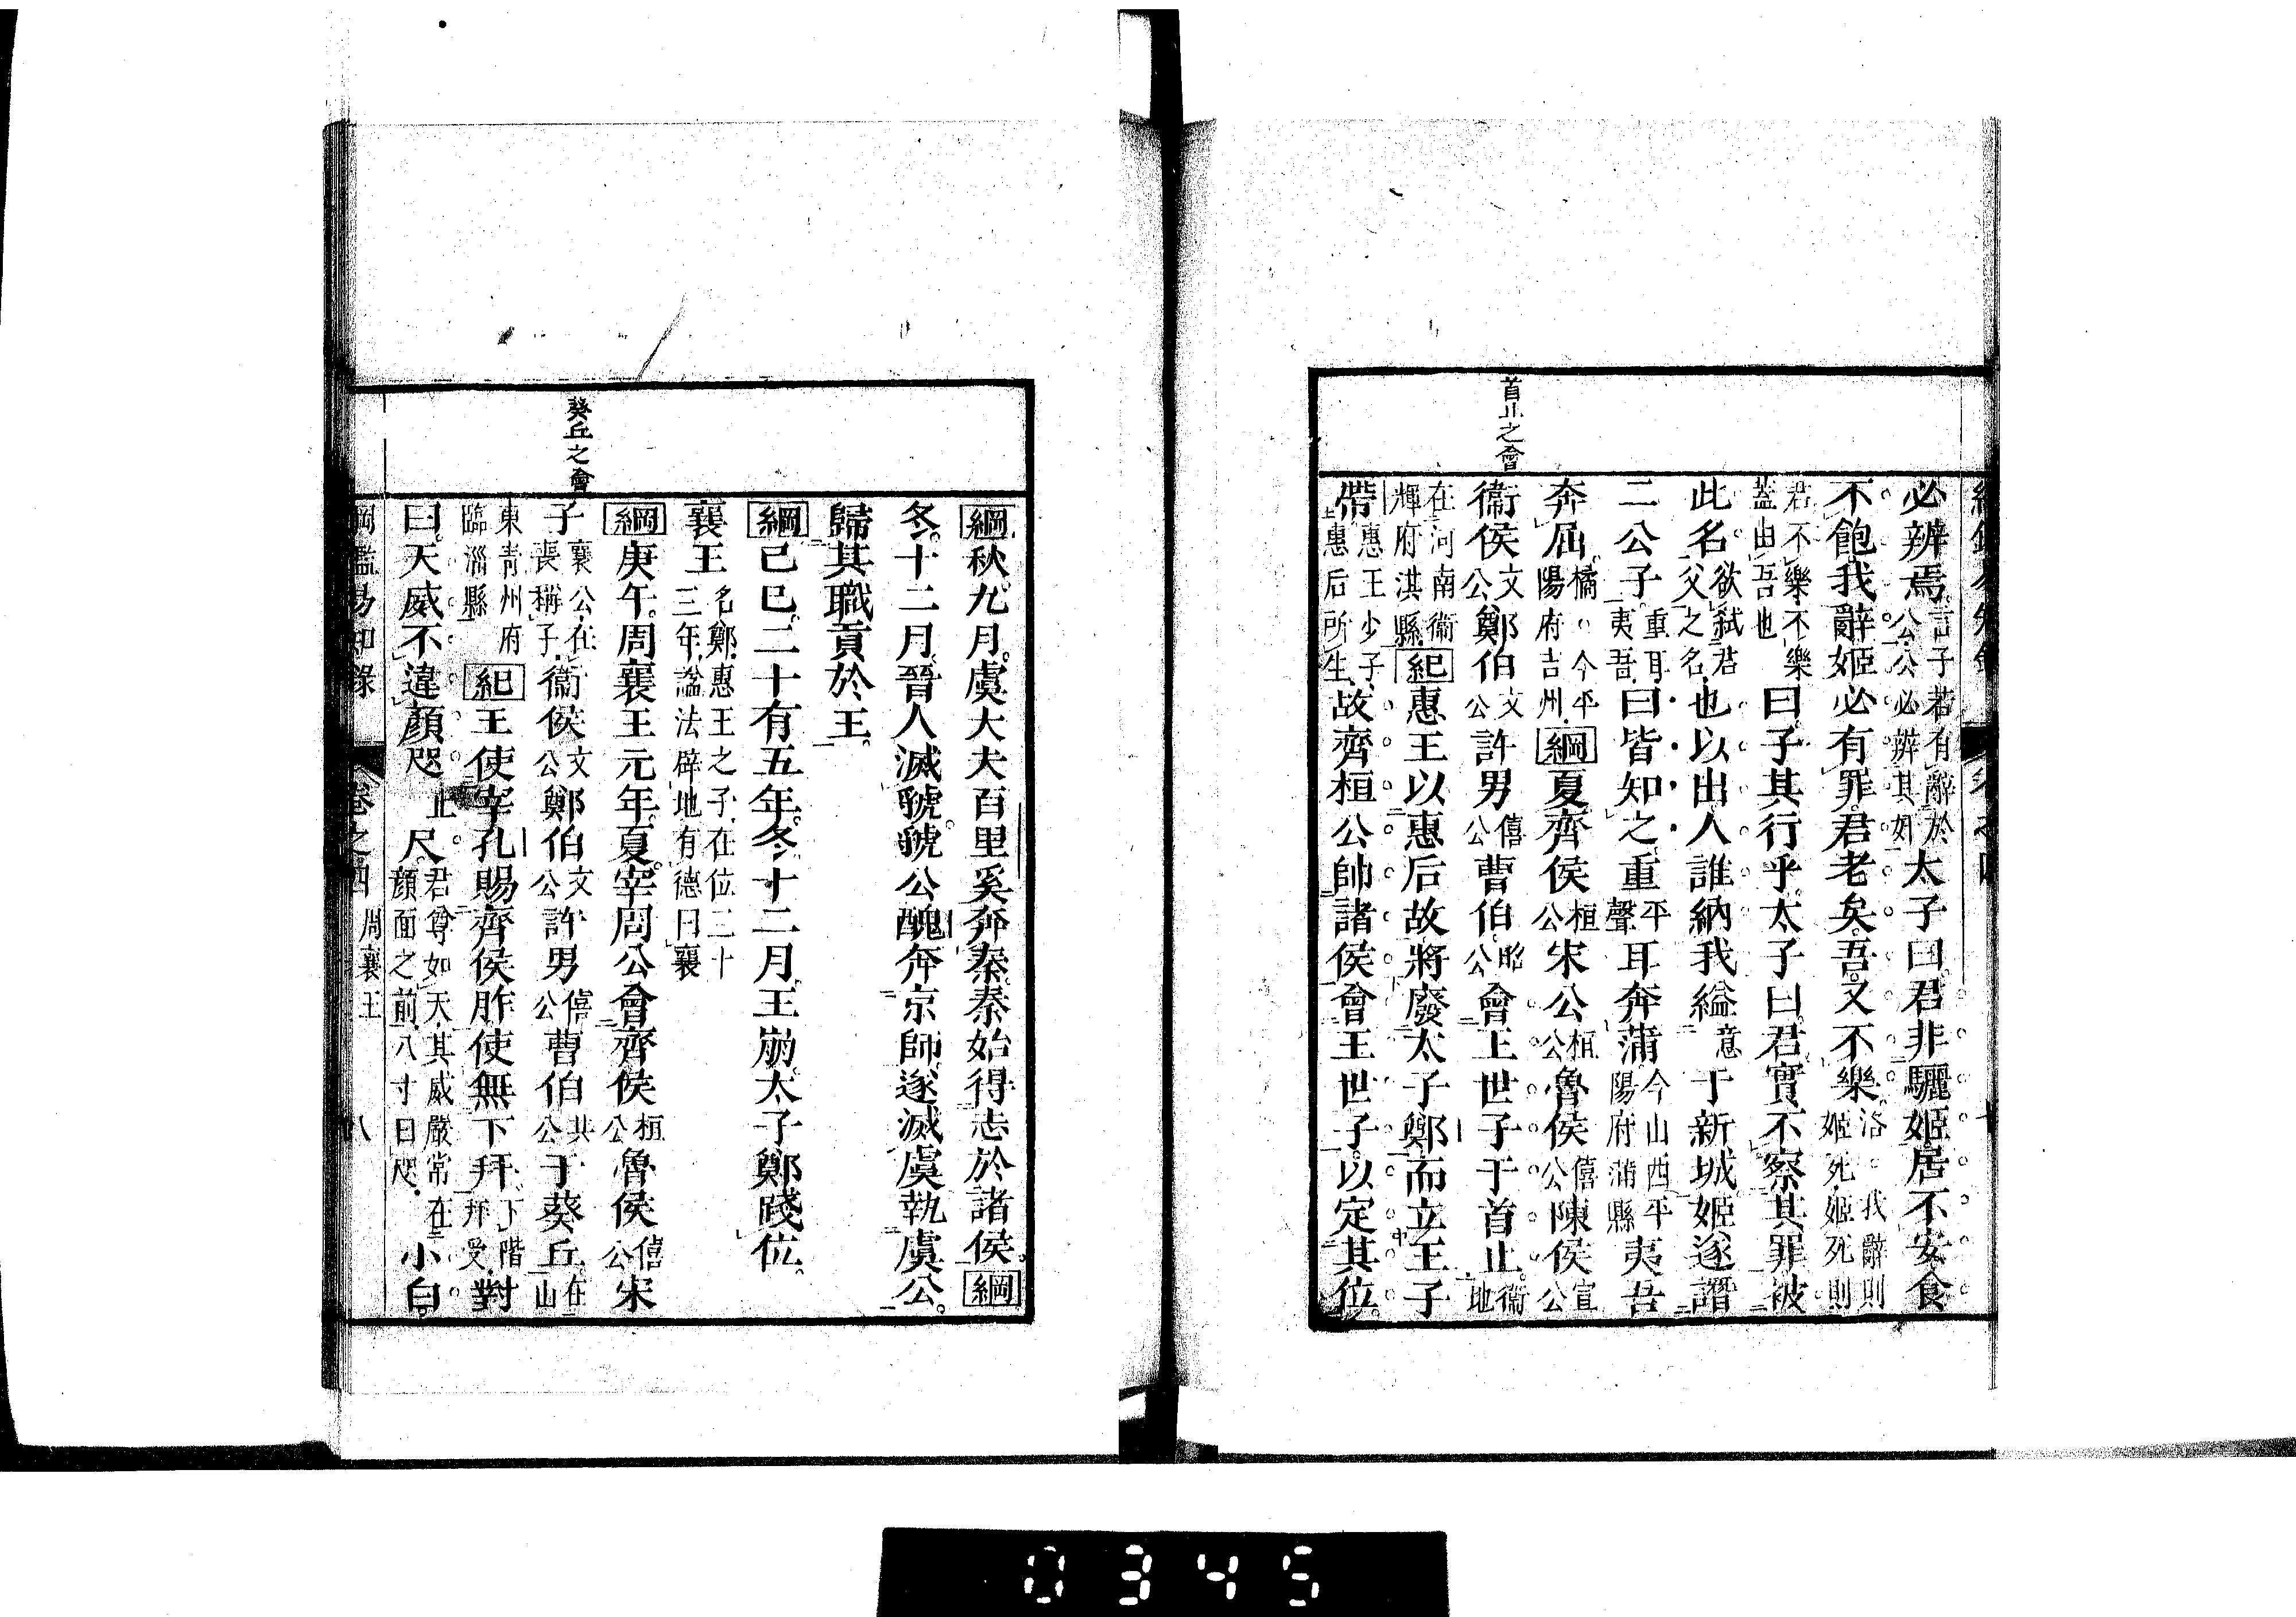 首止之會
必辨焉言子若有辭於公公必辨其奸太子曰君非驪姬居不安食
不飽我辭姬必有罪君老矣吾又不樂洛。我辭則姬死姬死則
君不樂不樂蓋由吾也曰子其行乎太子曰君實不察其罪被
此名欲弒君父之名也以出人誰納我縊意于新城姬遂譖
二公子重耳夷吾曰皆知之重平聲耳奔蒲今山西平陽府蒲縣夷吾
奔屈橘。今平陽府吉州綱夏齊侯桓公宋公桓公魯侯僖公陳侯宣公
衞侯文公鄭伯文公許男僖公曹伯昭公會王世子于首止衞地
在河南衞輝府淇縣紀惠王以惠后故將廢太子鄭而立王子
帶惠王少子惠后所生故齊桓公帥諸侯會王世子以定其位
葵丘之會
綱秋九月虞大夫百里奚奔秦秦始得志於諸侯綱
冬十二月晉人滅虢虢公醜奔京師遂滅虞執虞公
歸其職貢於王
綱己巳二十有五年冬十二月王崩太子鄭踐位
襄王名鄭惠王之子在位三十三年謚法辟地有德曰襄
綱庚午周襄王元年夏宰周公會齊侯桓公魯侯僖公宋
子襄公在喪稱子衞侯文公鄭伯文公許男僖公曹伯共公于葵丘在山
東青州府臨淄縣紀王使宰孔賜齊侯胙使無下拜下階拜受對
曰天威不違顏咫止尺君尊如天其威嚴常在顏面之前八寸曰咫小白
綱鑑易知錄 卷之四 周襄王 八